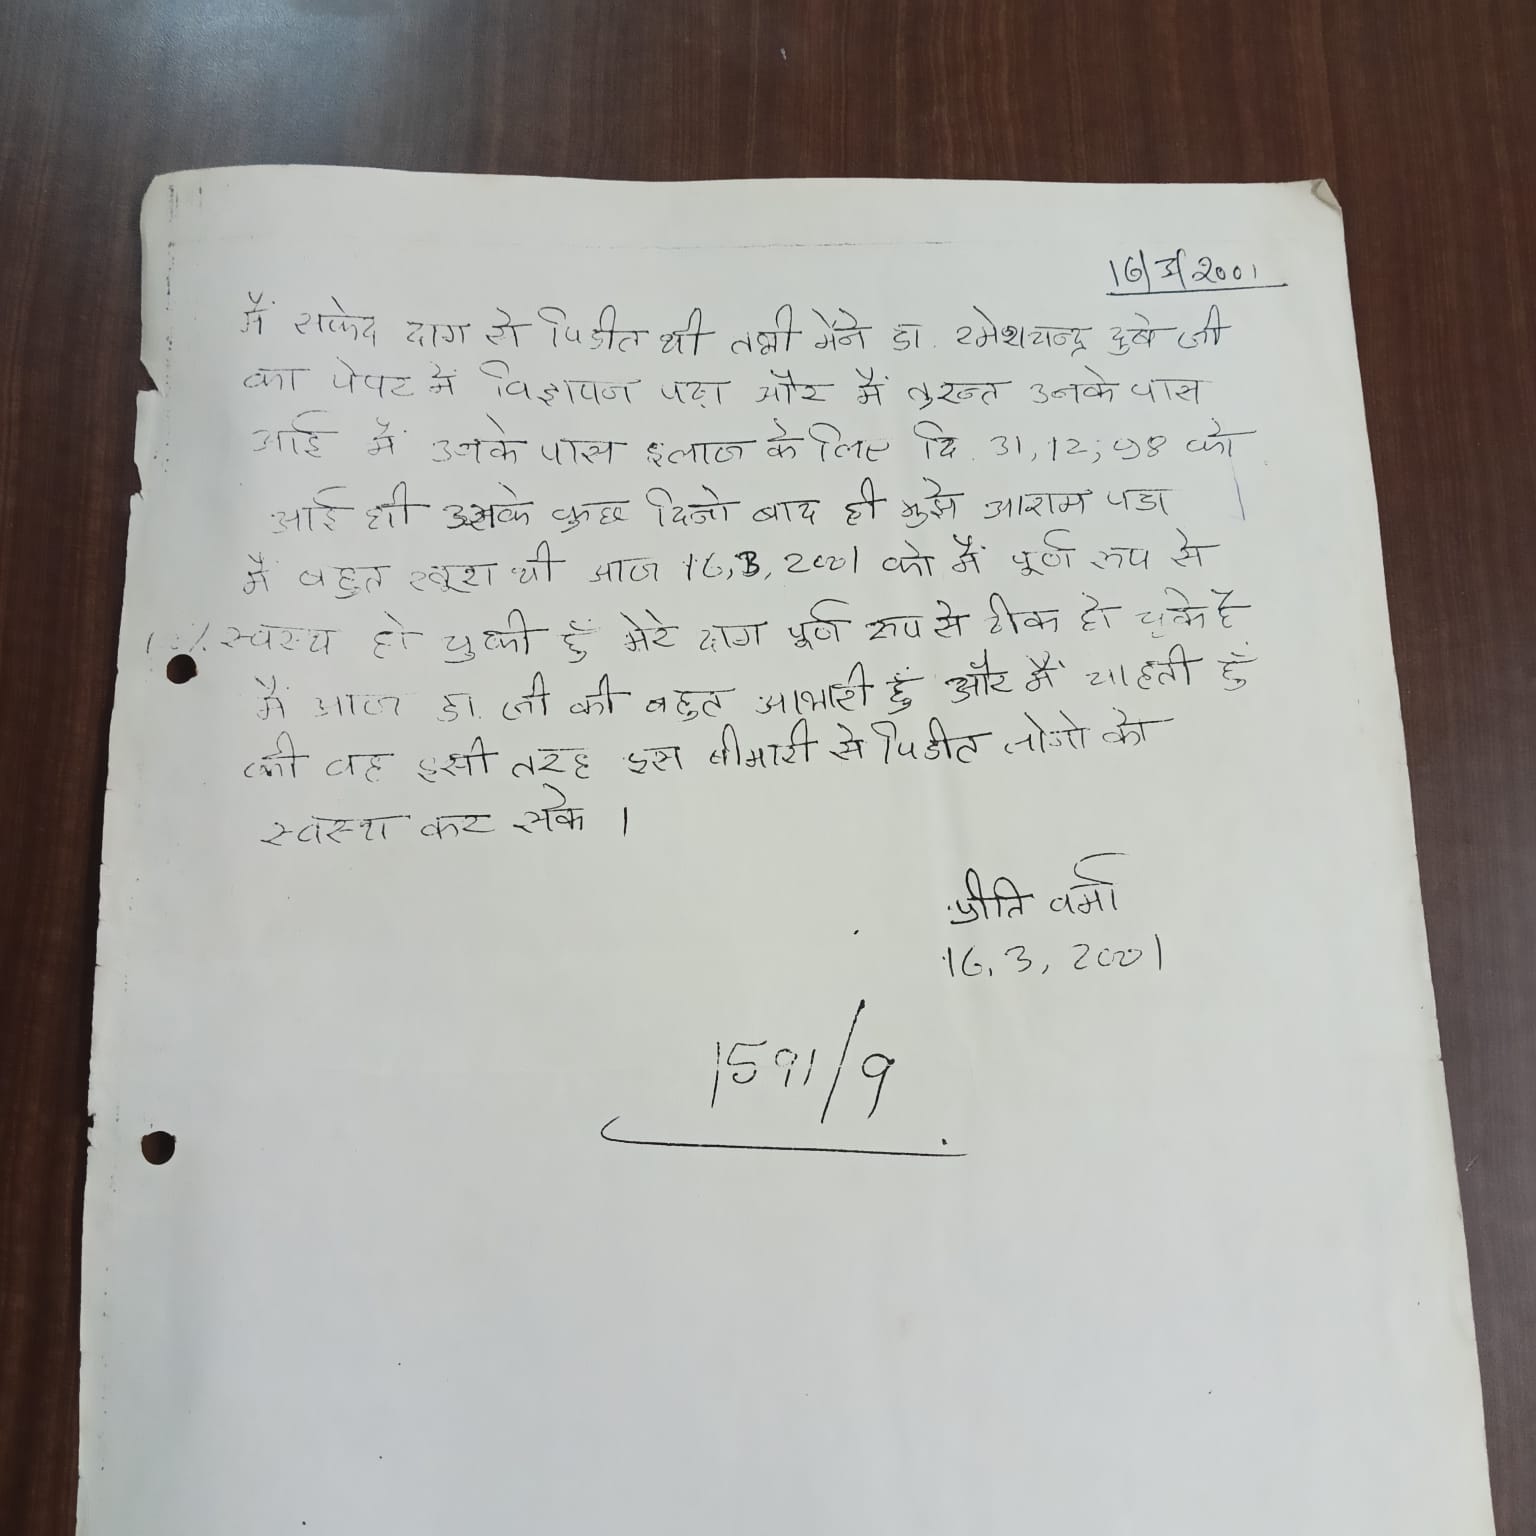 16/3/2001
मैं सफेद दाग से पिडीत थी तभी मैंने डा. रमेशचन्द्र दुबे जी
का पेपर में विज्ञापन पढ़ा और मैं तुरन्त उनके पास
आई मैं उनके पास इलाज के लिए दि. 31,12,98 को
आई थी उसके कुछ दिनो बाद ही मुझे आराम पडा
मैं बहुत खूश थी आज 16,3,2001 को मैं पूर्ण रुप से
स्वस्थ हो चुकी हुँ मेरे दाग पूर्ण रुप से ठीक हो चुके है
मैं आज डा. जी की बहुत आभारी हुँ और मैं चाहती हुँ
की वह इसी तरह इस बीमारी से पिडीत लोगो को
स्वस्थ कर सके ।
प्रीति वर्मा
16,3,2001
1591/9